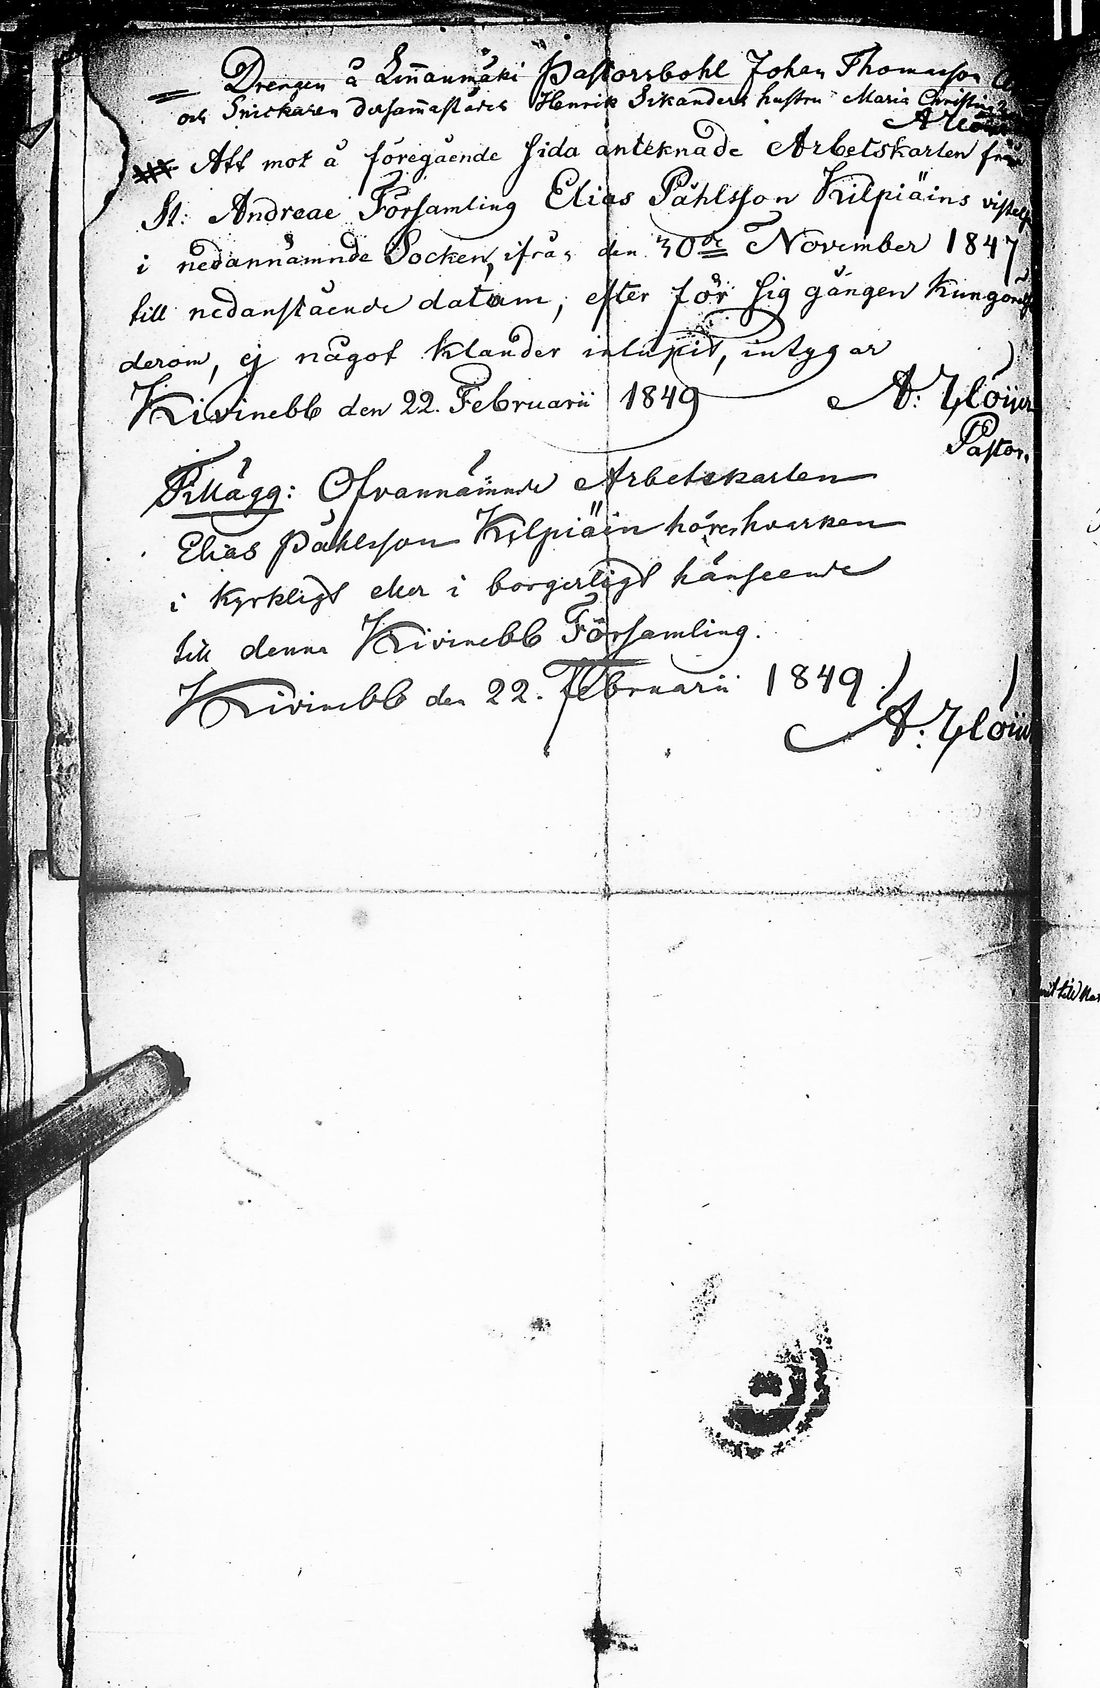 Drengen å Linnanmäki Pastorsbohl Johan Thomasson
och Snickaren dersammastädes Henrik Sikanders hustru Maria Christina
Att mot å föregående sida anteknade Arbetskarlen från
St: Andreae Församling Elias Påhlsson Kilpiäins vistelse
i nedannämnde Socken, ifrån den 30de November 1847
till nedanstående datum, efter för sig gången Kungörelse
derom, ej något Klander inlupit, intygar
Kivinebb den 22. Februarii 1849 A:
Pastor.
Tillägg: Ofvannämnde Arbetskarlen
Elias Påhlsson Kilpiäin hörer hvarken
i Kyrkligt eller i borgerligt hänseende
till denna Kivinebb Församling.
Kivinebb den 22. Februarii 1849.
A: